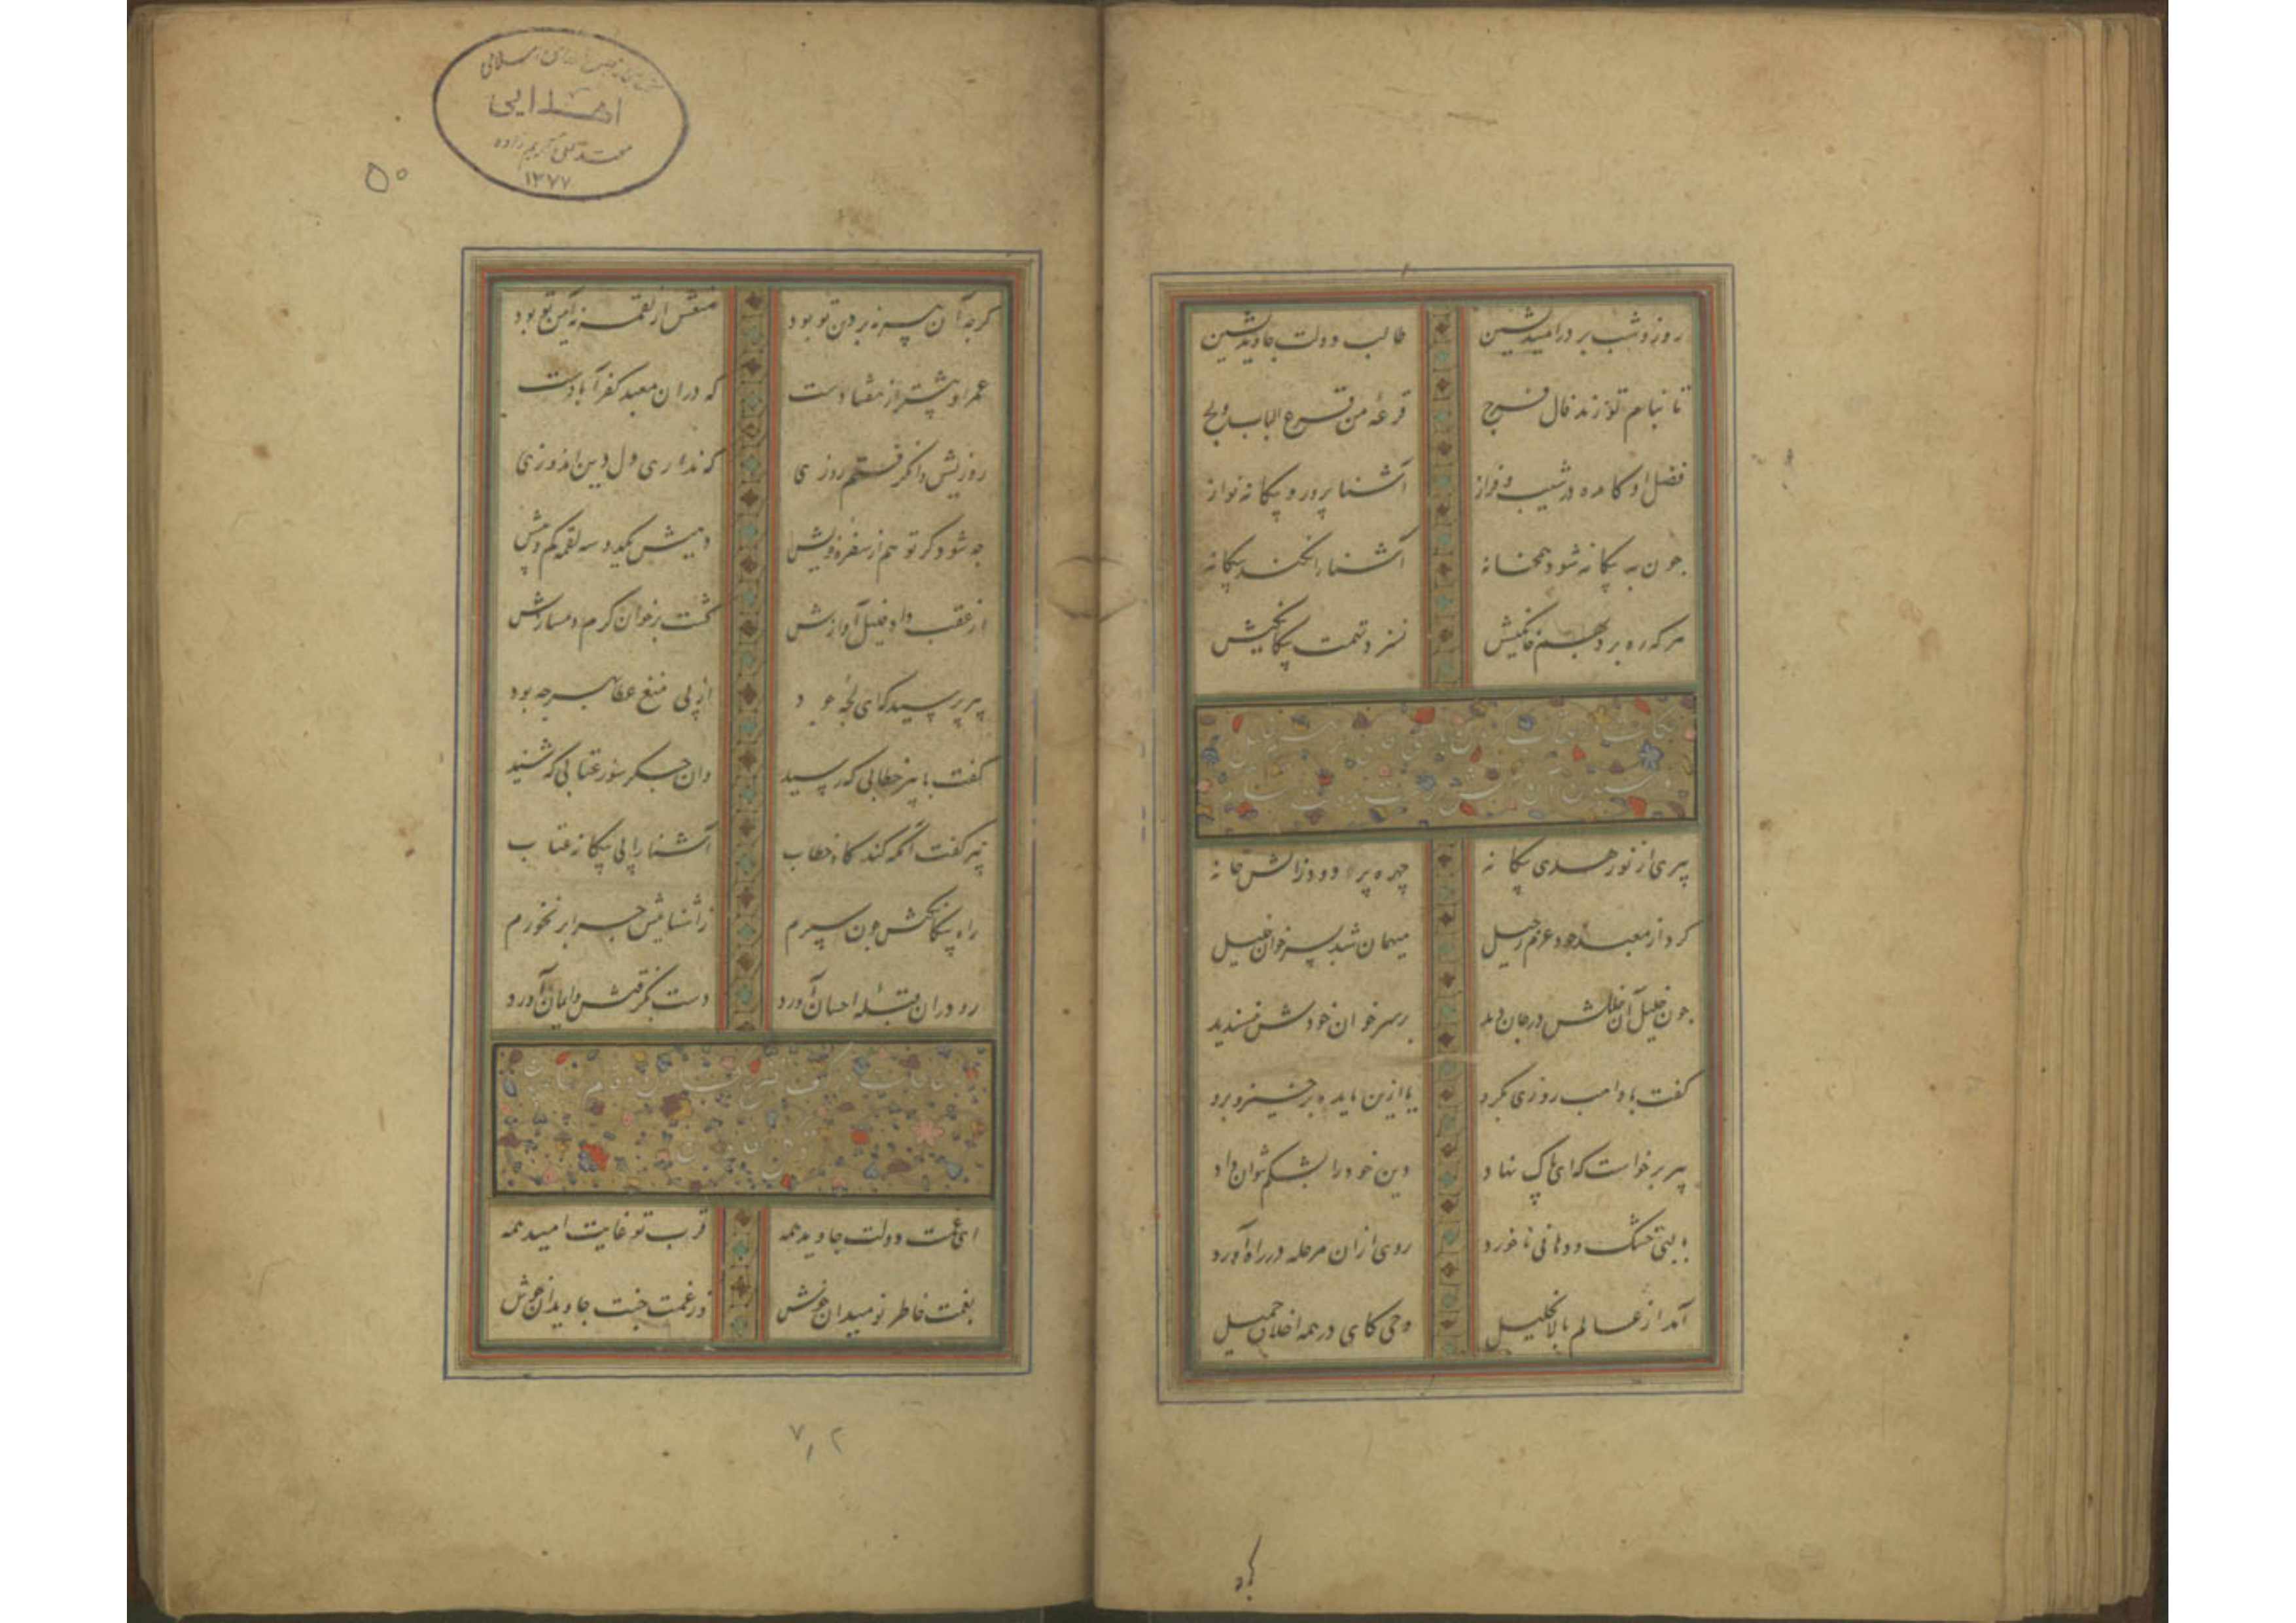 روز و شب بر در امید نشین طالب دولت جاوید نشین
تا بنام تو زند فال فرج قرعه من قرع الباب ولج
فضل او کامده در شیب و فراز آشنا پرور و بیکانه نواز
جون به بیکانه شود همخانه آشنا را نکند بیکانه
هر که ره برد بهم خانکیش نسزد تهمت بیکانکیش
حکایت
پیری از نور هدی بیکانه چهره پر دود ز آتش خانه
کرد از معبد خود عزم رحیل میهمان شد بسر خوان خلیل
جون خلیل آن خللش در جان دید بر سر خوان خودش نپسندید
کفت با واهب روزی بکرو یا ازین مایده برخیز و برو
پیر برخاست که ای پاک نهاد دین خود را بشکم نتوان داد
با لبی خشک و دهانی ناخورد روی ازان مرحله در راه آورد
آمد از عالم بالا بخلیل وحی کای در همه اخلاق جمیل
کتابخانه مجلس شورای اسلامی
اهدایی
۱۳۷۷
۵۰
کرجه آن پیر نه بر دین تو بود منعش از لقمه نه آیین تو بود
عمر او بیشتر از هفتادست که دران معبد کفر آبادست
روزیش وانکرفتم روزی که نداری دل دین اندوزی
جه شود کر تو هم از سفره خویش دهیش یکدو سه لقمه کم و بیش
از عقب داد خلیل آوازش کشت بر خوان کرم دمسازش
پیر پرسید که ای لجه جود از پی منع عطا بهر جه بود
کفت با پیر خطابی که رسید وان جکر سوز عتابی که شنید
پیر کفت آنکه کند کاه خطاب آشنا را پی بیکانه عتاب
راه بیکانکیش چون سپرم ز آشناییش جرا بر نخورم
رو دران قبله احسان آورد دست بکرفتش و ایمان آورد
مناجات
ای غمت دولت جاوید همه قرب تو غایت امید همه
بغمت خاطر نومیدان خوش در غمت جنت جاویدان خوش